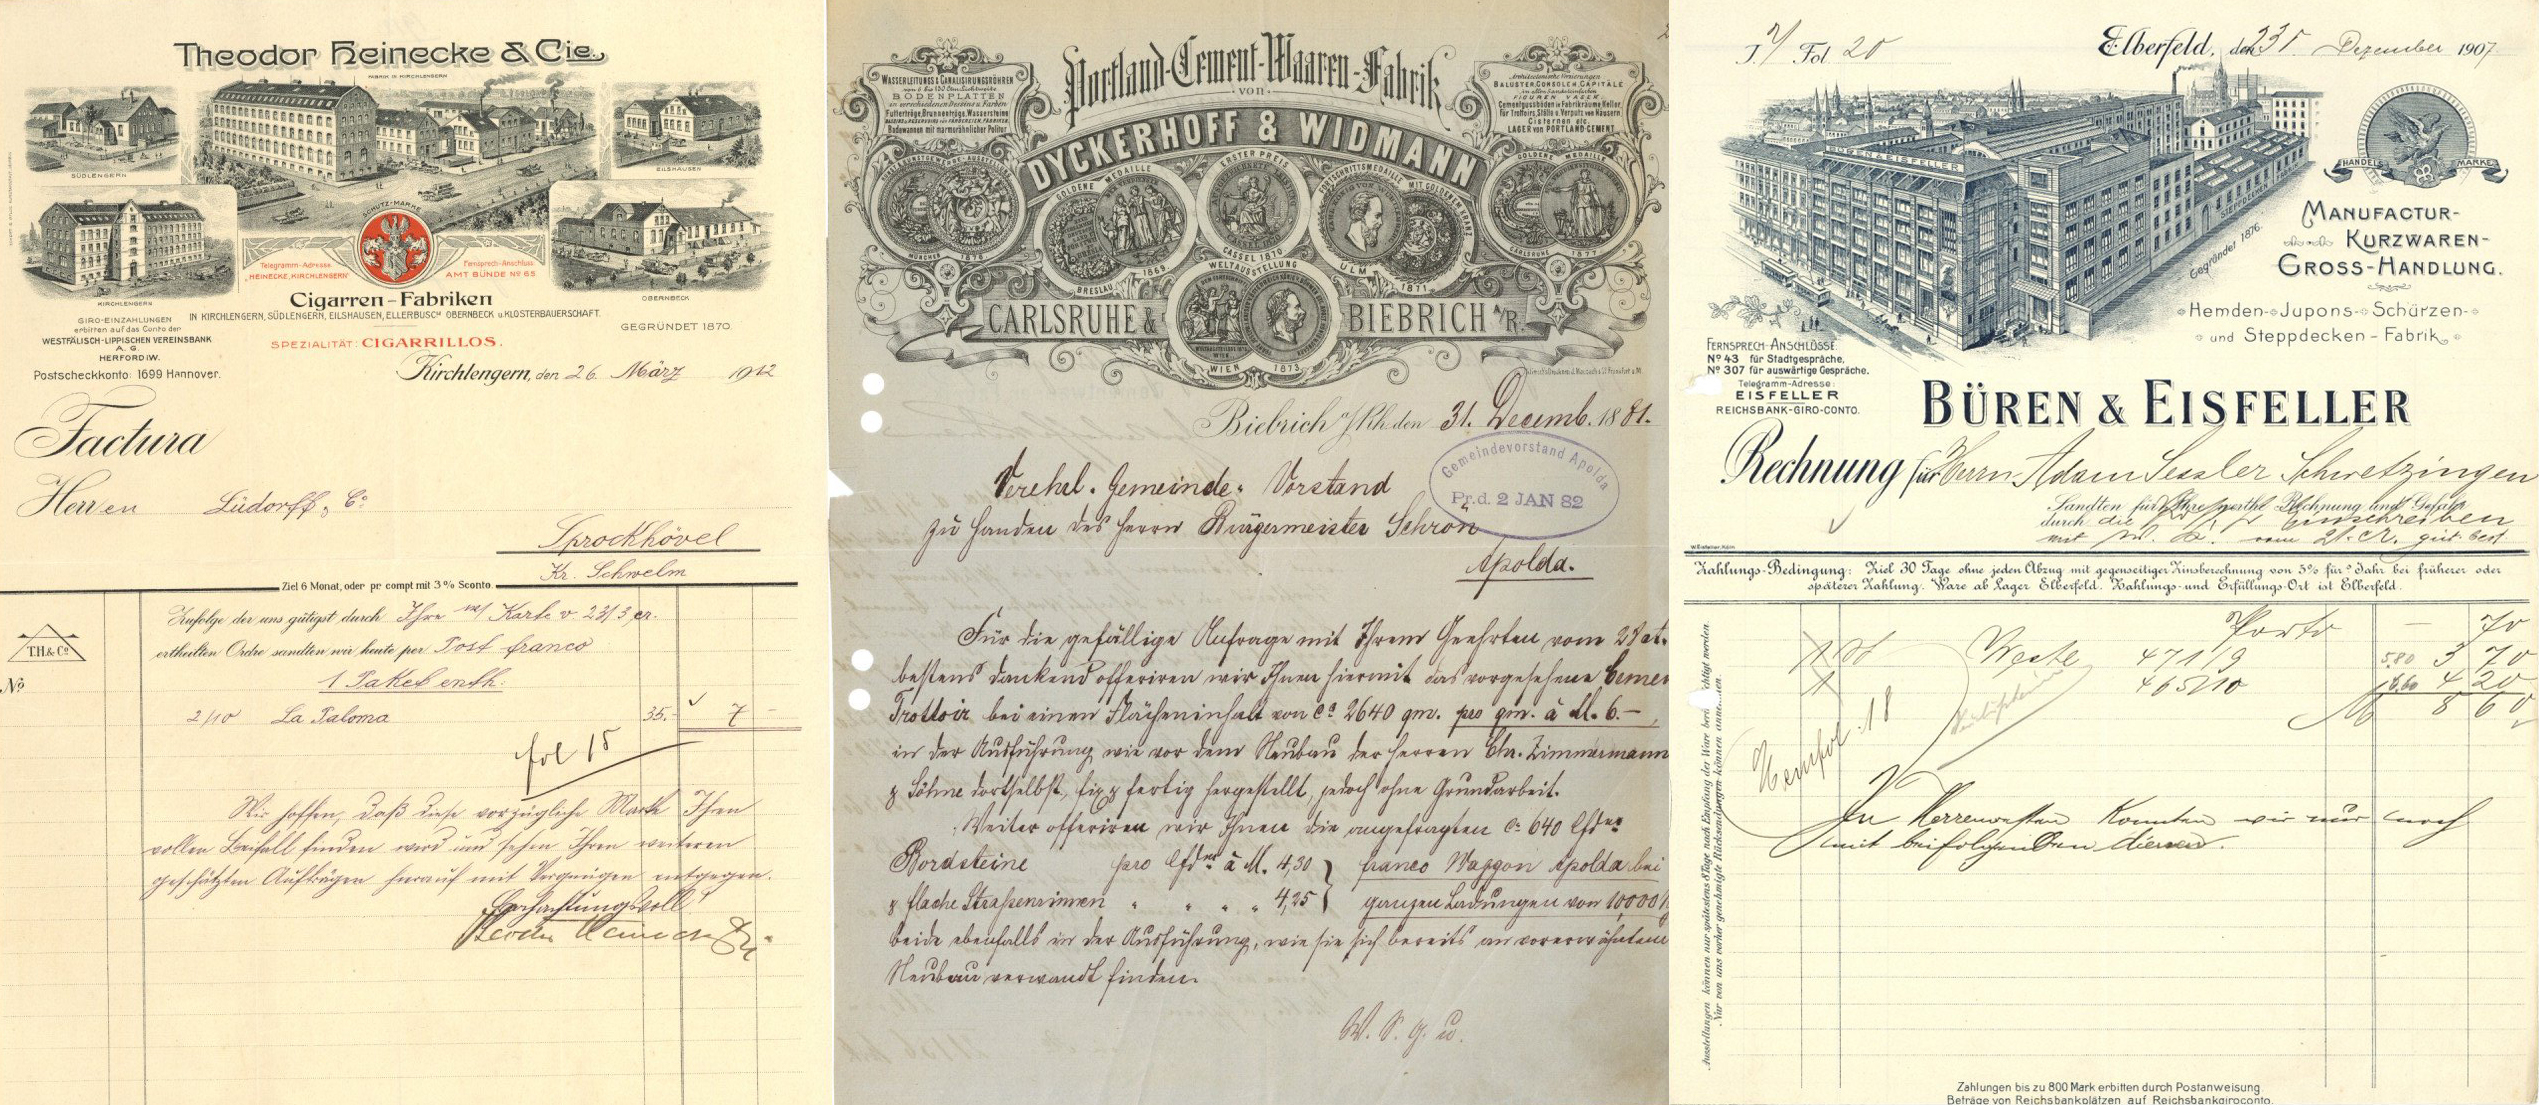 Theodor Heinecke & Cie.
FABRIK IN KIRCHLENGERN
SÜDLENGERN
EILSHAUSEN
SCHUTZ-MARKE
KIRCHLENGERN
OBERNBECK
Telegramm-Adresse
"HEINECKE, KIRCHLENGERN"
Fernsprech-Anschluss
AMT BÜNDE Nº 65
Cigarren-Fabriken
IN KIRCHLENGERN, SÜDLENGERN, EILSHAUSEN, ELLERBUSCH OBERNBECK u. KLOSTERBAUERSCHAFT.
GEGRÜNDET 1870.
SPEZIALITÄT: CIGARRILLOS.
GIRO-EINZAHLUNGEN
erbitten auf das Conto der
WESTFÄLISCH-LIPPISCHEN VEREINSBANK
A. G.
HERFORD i W.
Postscheckkonto: 1699 Hannover.
Kirchlengern, den 26. März 1912
Factura
Herren Lüdorff & Cº
Sprockhövel
Kr. Schwelm
Ziel 6 Monat, oder pr compt mit 3% Sconto.
Zufolge der uns gütigst durch Ihre Karte v 23/3 cr.
ertheilten Ordre sandten wir heute per Post franco
T.H. & Cº
Nº
1 Paket enth:
2/10 La Paloma 35.- 7 -
fol 18
Wir hoffen, daß diese vorzügliche Marke Ihren
vollen Beifall finden wird und sehen Ihren weiteren
geschätzten Aufträgen hierauf mit Vergnügen entgegen.
Hochachtungsvoll
Theodor Heinecke & Cie.
Portland-Cement-Waaren-Fabrik
VON
DYCKERHOFF & WIDMANN
WASSERLEITUNGS & CANALISIRUNGSRÖHREN
BODENPLATTEN
in verschiedenen Dessins u. Farben
Futtertröge, Brunnentröge, Wassersteine
Badewannen mit marmorähnlicher Politur
Architectonische Verzierungen
BALUSTER, CONSOLEN, CAPITÄLE
FIGUREN, VASEN
Cementgussböden in Fabrikräume, Keller,
für Trottoirs, Ställe u. Verputz von Häusern
Cisternen etc.
LAGER von PORTLAND-CEMENT
MÜNCHEN 1876
GOLDENE MEDAILLE
BRESLAU 1869
ERSTER PREIS
CASSEL 1870
FORTSCHRITTSMEDAILLE MIT GOLDENEM KRANZ
ULM 1871
GOLDENE MEDAILLE
CARLSRUHE 1877
WELTAUSSTELLUNG
WIEN 1873
CARLSRUHE & BIEBRICH a/R.
Biebrich a/Rh. den 31. Decemb. 1881.
Gemeindevorstand Apolda
Pr. d. 2 JAN 82
Verehrl. Gemeinde-Vorstand
zu Handen des Herrn Bürgermeister Schrön
Apolda.
Für die gefällige Anfrage mit Ihrem Geehrten vom
bestens dankend offeriren wir Ihnen hiermit das vorgesehene Cement
Trottoir bei einem Flächeninhalt von cª 2640 qm. pro qm. à M. 6.-,
in der Ausführung wie vor dem Neubau der Herren Chr. Zimmermann
& Söhne dortselbst, fix & fertig hergestellt, jedoch ohne Grundarbeit.
Weiter offeriren wir Ihnen die angefragten cª 640 lfdr
Bordsteine pro lfdr à M. 4,30 } franco Waggon Apolda bei
& flache Straßenrinnen " " " " 4,25 } ganzen Ladungen von 10,000
beide ebenfalls in der Ausführung, wie sie sich bereits an vorerwähntem
Neubau verwandt finden.
W. S. g. u.
J. 7/ Fol. 20 Elberfeld, den 23. Dezember 1907
BÜREN & EISFELLER
HANDELS MARKE
STEPPDECKEN FABRIK
Gegründet 1876.
MANUFACTUR-
KURZWAREN-
GROSS-HANDLUNG.
Hemden-Jupons-Schürzen-
und Steppdecken-Fabrik.
FERNSPRECH-ANSCHLÜSSE:
Nº 43 für Stadtgespräche,
Nº 307 für auswärtige Gespräche.
Telegramm-Adresse:
EISFELLER
REICHSBANK-GIRO-CONTO.
BÜREN & EISFELLER
Rechnung für Herrn Adam Sessler Schwetzingen
Sandten für Ihre werthe Rechnung und Gefahr
durch die Einschreiben
vom 21. cr. gut. best.
W. Eisfeller, Köln
Zahlungs-Bedingung: Ziel 30 Tage ohne jeden Abzug mit gegenseitiger Zinsberechnung von 5% für's Jahr bei früherer oder
späterer Zahlung. Ware ab Lager Elberfeld. Zahlungs- und Erfüllungs-Ort ist Elberfeld.
Porto - 70
1 St Weste 471/9 5,80 3 70
1 465/10 6,60 4 20
M 8 60
In Herrenwesten konnten wir nur noch
mit beifolgenden dienen.
Ausstellungen können nur spätestens 8 Tage nach Empfang der Ware berü chtigt werden.
Nur von uns vorher genehmigte Rücksendungen können
Zahlungen bis zu 800 Mark erbitten durch Postanweisung.
Beträge von Reichsbankplätzen auf Reichsbankgiroconto.